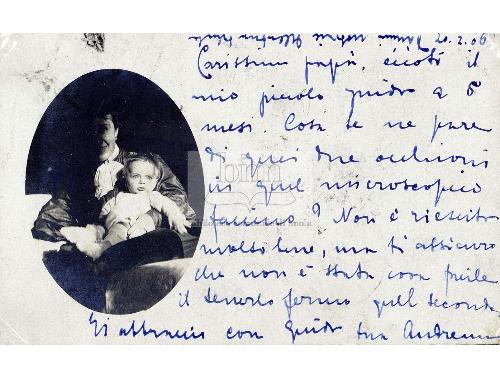 20.2.06
Carissimo papà, eccoti il
mio piccolo Guido a 6
mesi. Cosa te ne pare
di quei due occhioni
in quel microscopico
faccino? Non è riescito
molto bene, ma ti assicuro
che non è stata cosa facile
il tenerlo fermo quel secondo
Ti abbraccio con Guido tua Andreina